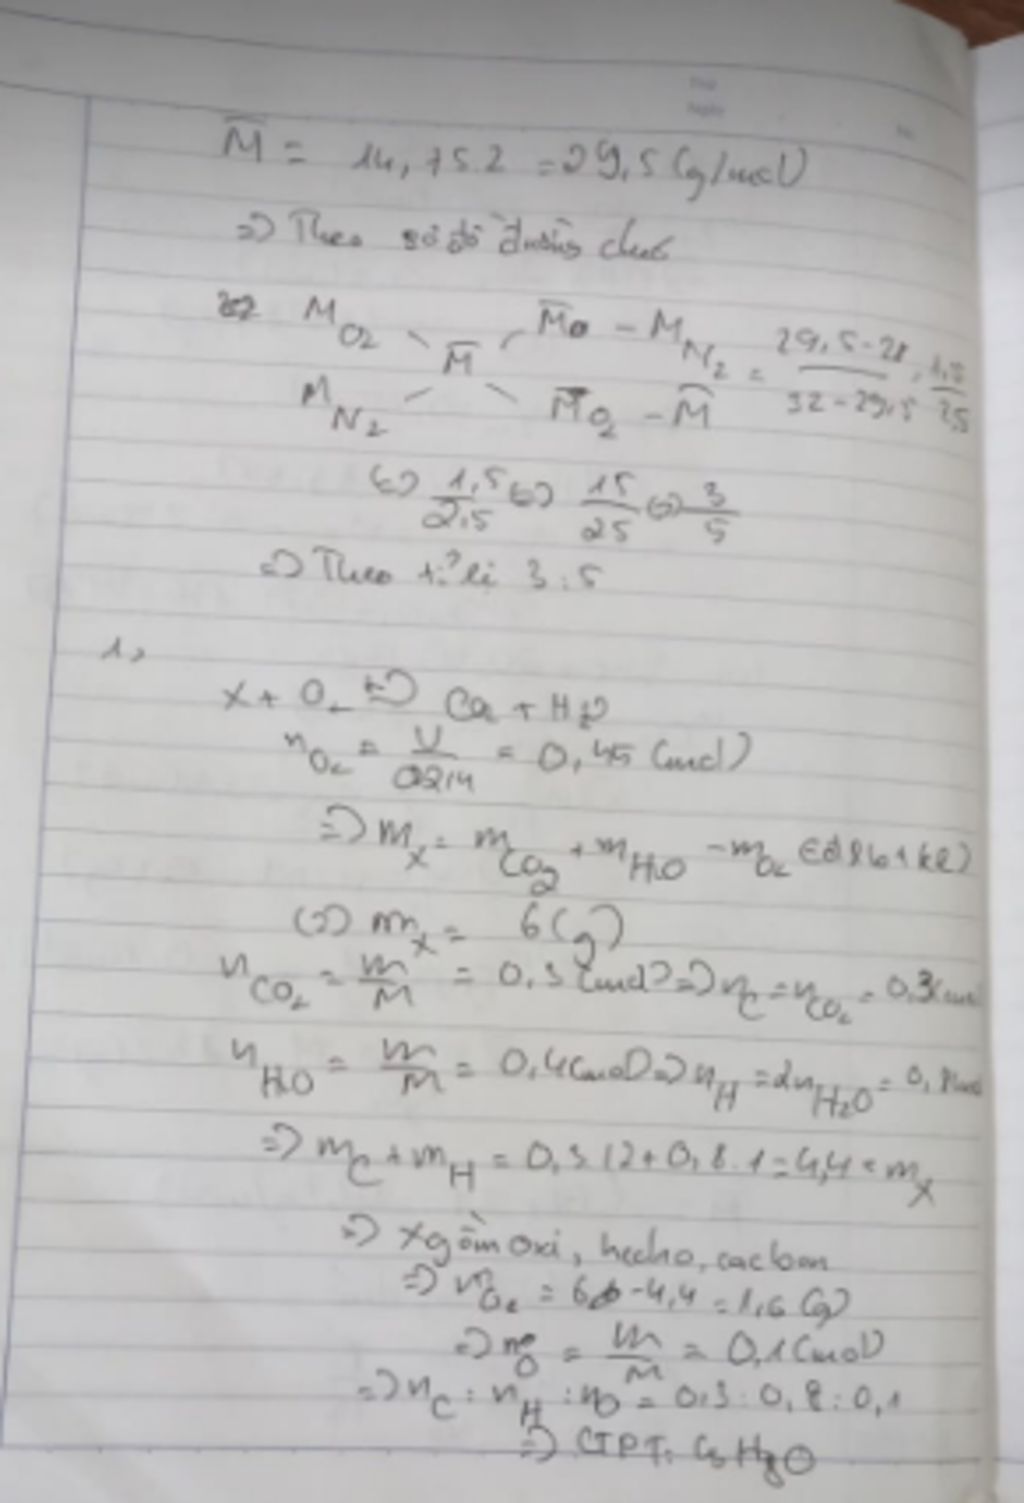 M̅ = 14,75.2 = 29,5 (g/mol)
=> Theo sơ đồ đường chéo
M O2 M̅ - M N2 = 29,5-28 / 32-29,5 = 1,5 / 2,5
M̅
M N2 M O2 - M̅
<=> 1,5/2,5 <=> 15/25 <=> 3/5
=> Theo tỉ lệ 3:5
1,
X + O2 CO2 + H2O
nO2 = V/22,4 = 0,45 (mol)
=> mX = mCO2 + mH2O - mO2
<=> mX = 6 (g)
nCO2 = m/M = 0,3 (mol) => nC = nCO2 = 0,3 (mol)
nH2O = m/M = 0,4 (mol) => nH = 2nH2O = 0,8 mol
=> mC + mH = 0,3.12 + 0,8.1 = 4,4 < mX
=> X gồm oxi, hidro, cacbon
= 6 - 4,4 = 1,6 (g)
=> nO = m/M = 0,1 (mol)
=> nC : nH : nO = 0,3 : 0,8 : 0,1
=> CTPT: C3H8O